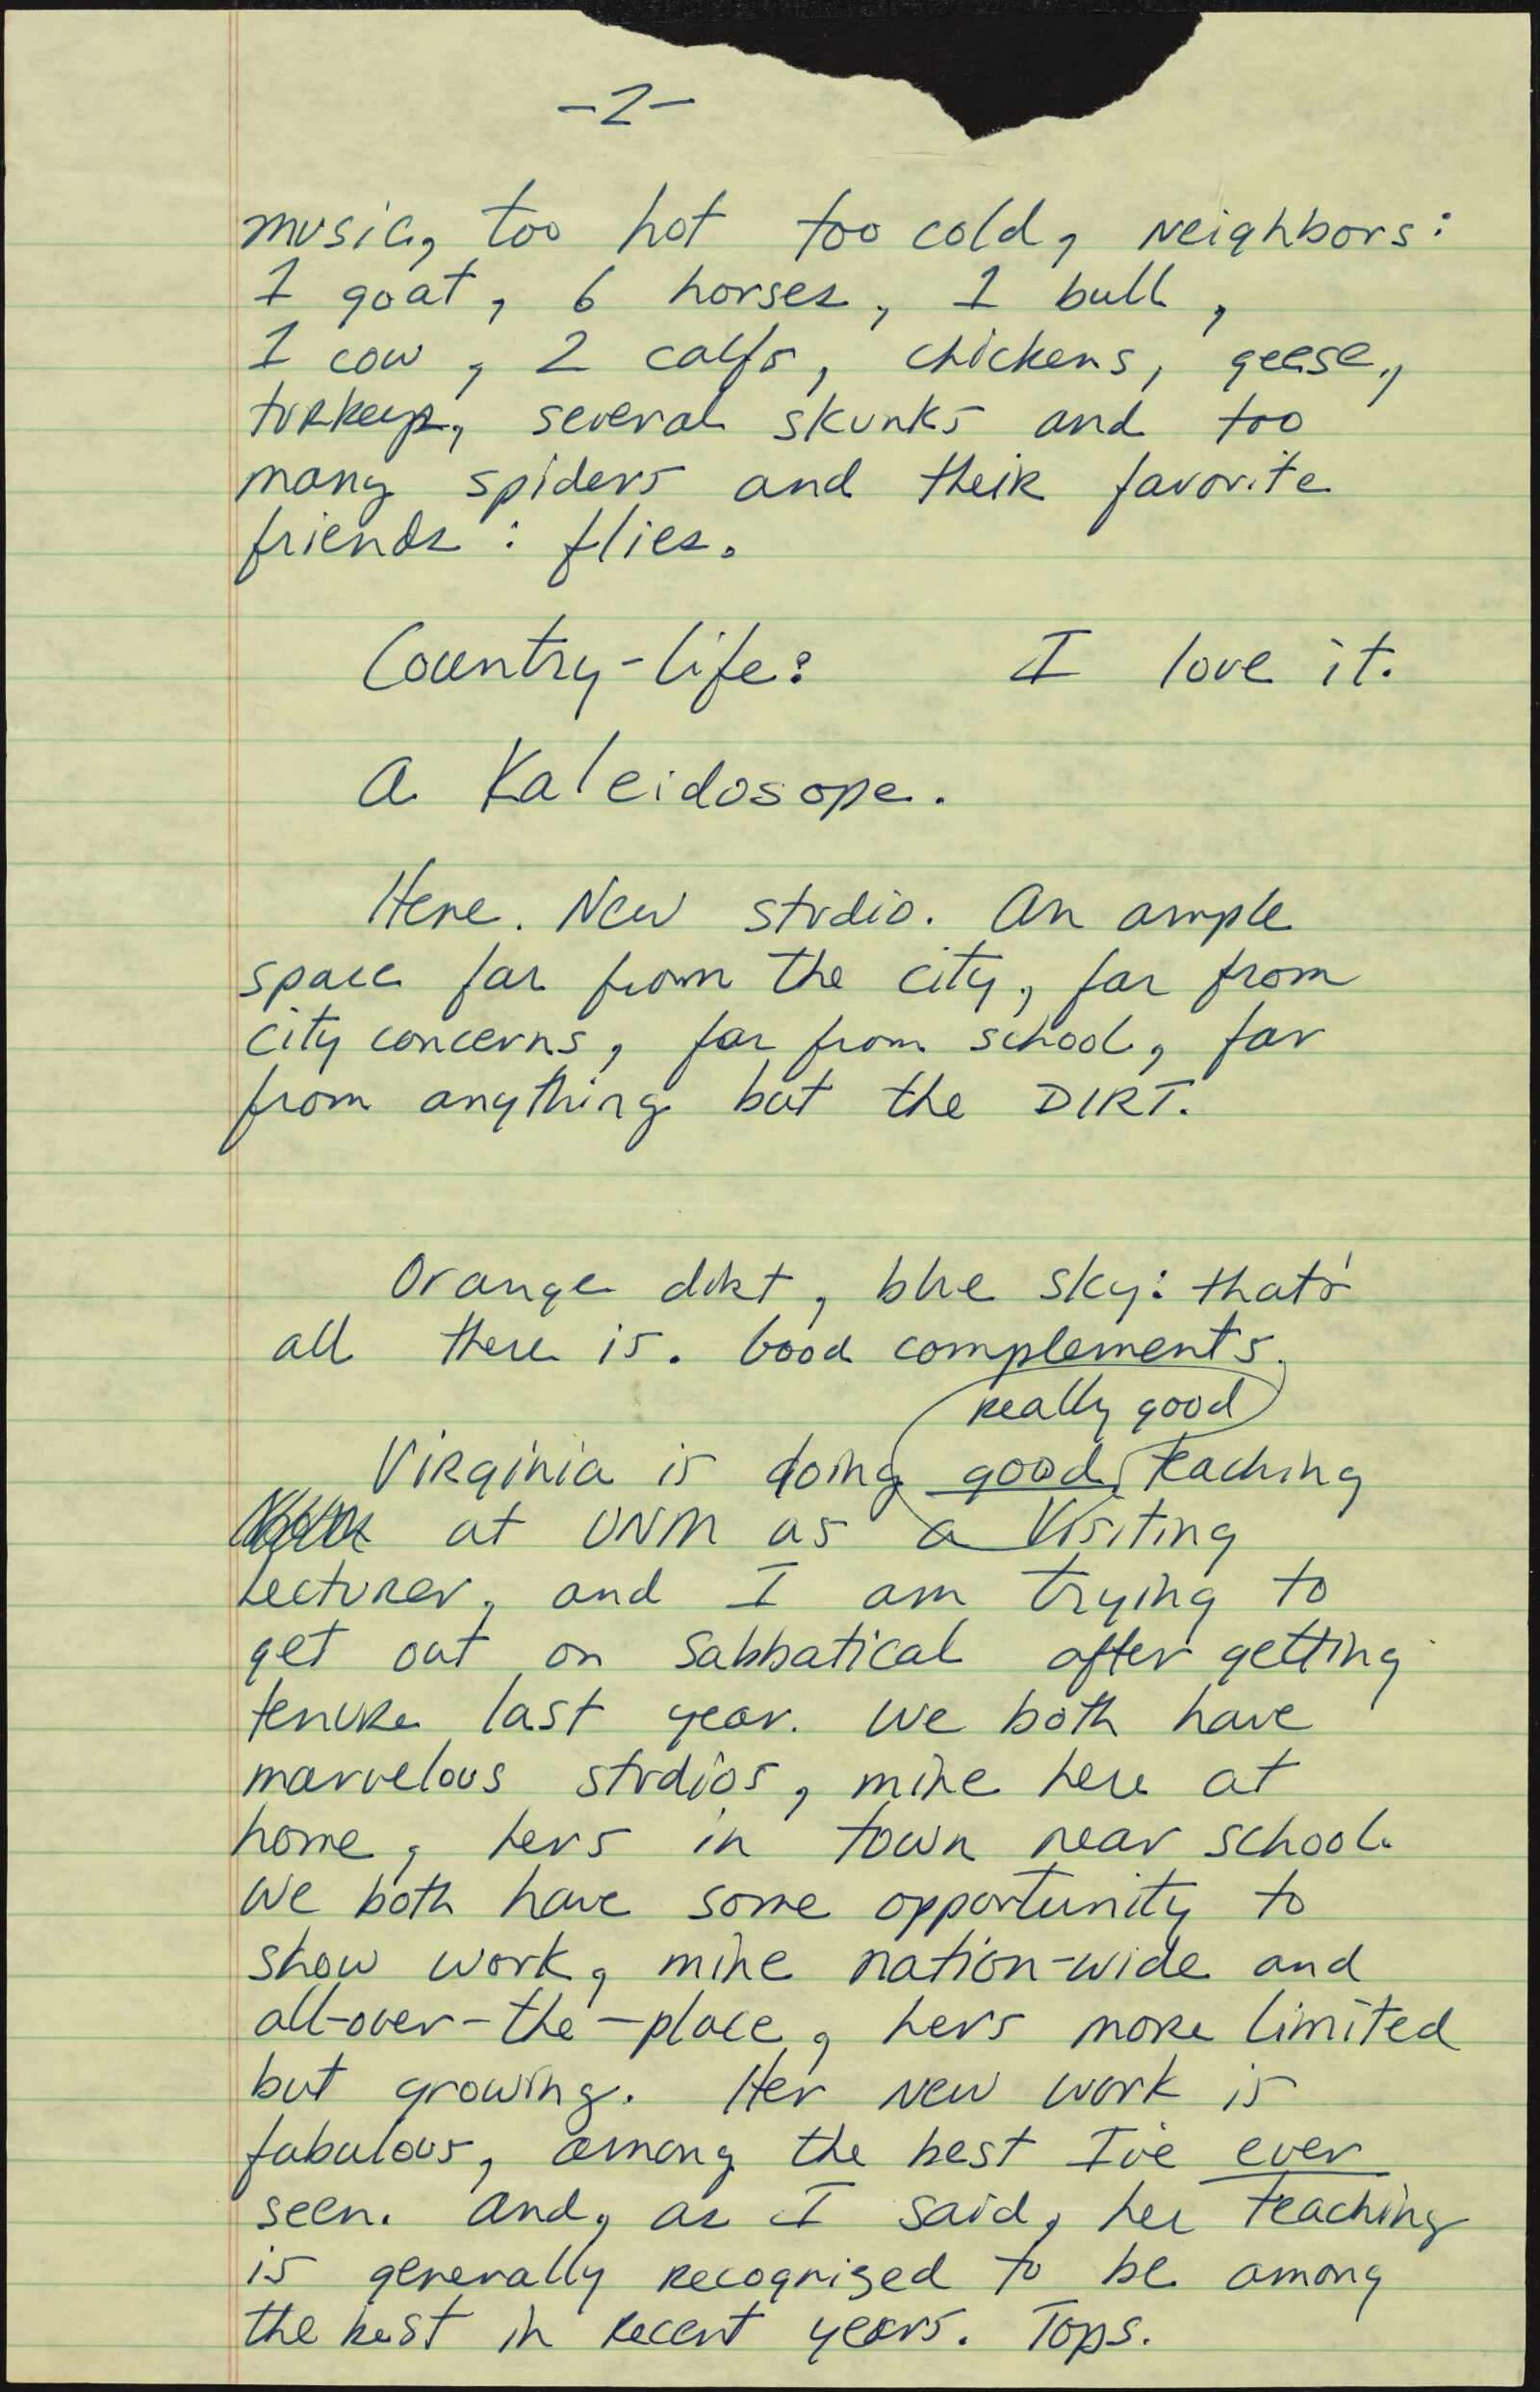 -2-
music, too hot too cold, neighbors:
1 goat, 6 horses, 1 bull,
1 cow, 2 calfs, chickens, geese,
turkeys, several skunks and too
many spiders and their favorite
friends: flies.
Country-life: I love it.
A Kaleidosope.
Here. New studio. An ample
space far from the city, far from
city concerns, far from school, far
from anything but the DIRT.
Orange dirt, blue sky: that's
all there is. Good complements.
really good
Virginia is doing good, teaching
at UNM as a Visiting
Lecturer, and I am trying to
get out on Sabbatical after getting
tenure last year. We both have
marvelous studios, mine here at
home, hers in town near school.
We both have some opportunity to
show work, mine nation-wide and
all-over-the-place, hers more limited
but growing. Her new work is
fabulous, among the best I've ever
seen. And, as I said, her teaching
is generally recognized to be among
the best in recent years. Tops.